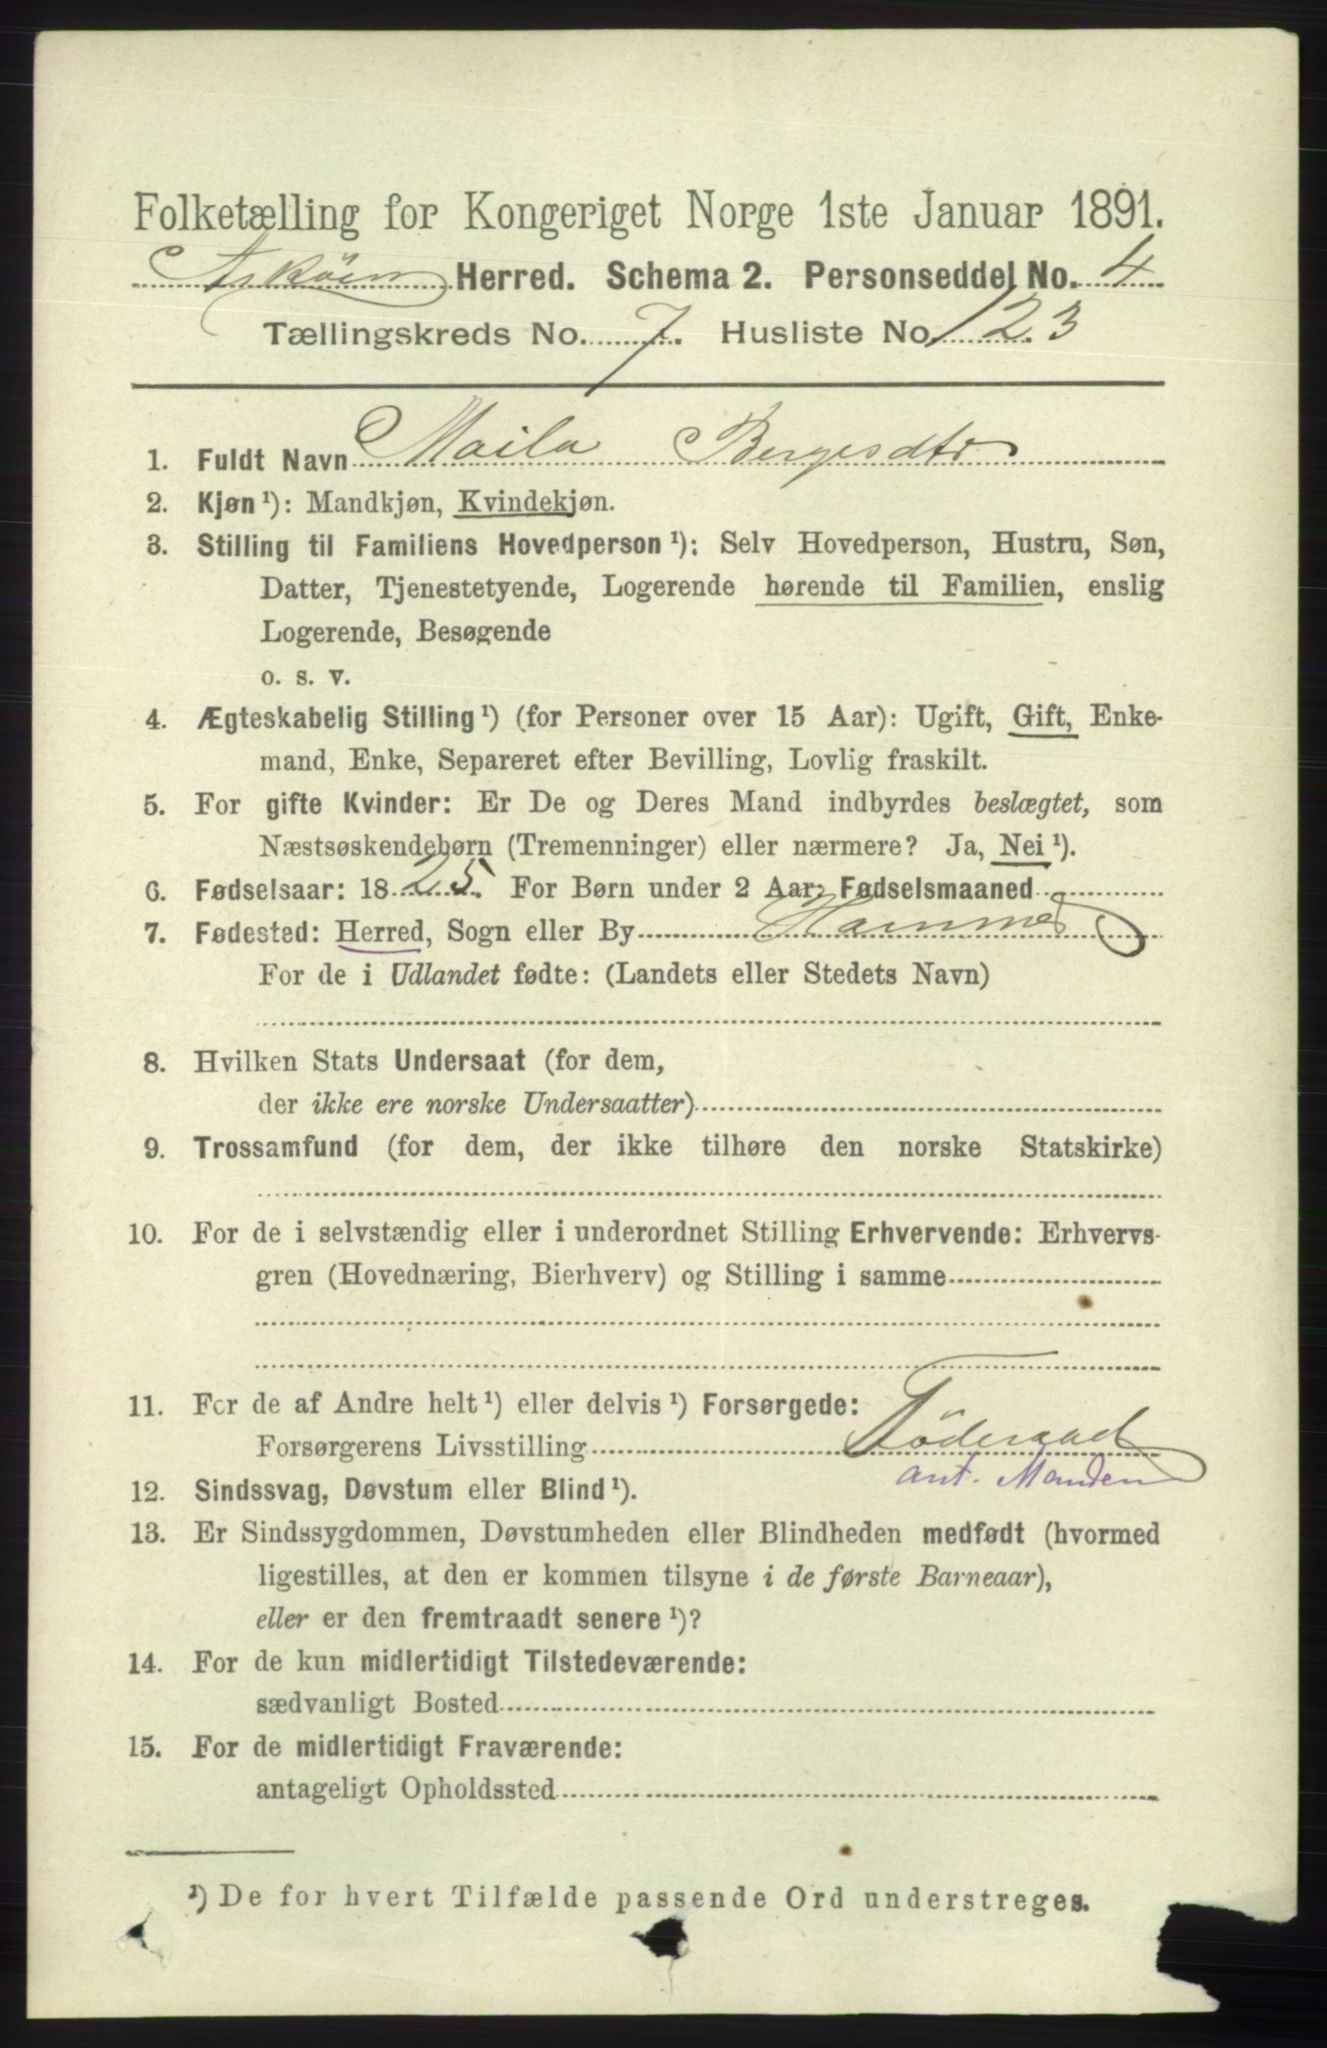 Folketælling for Kongeriget Norge 1ste Januar 1891.
Askøen Herred. Schema 2. Personseddel No. 4
Tællingskreds No. 7. Husliste No. 123
1. Fuldt Navn Maila Bergesdtr
2. Kjøn¹): Mandkjøn, Kvindekjøn.
3. Stilling til Familiens Hovedperson¹): Selv Hovedperson, Hustru, Søn,
Datter, Tjenestetyende, Logerende hørende til Familien, enslig
Logerende, Besøgende
o. s. v.
4. Ægteskabelig Stilling¹) (for Personer over 15 Aar): Ugift, Gift, Enke-
mand, Enke, Separeret efter Bevilling, Lovlig fraskilt.
5. For gifte Kvinder: Er De og Deres Mand indbyrdes beslægtet, som
Næstsøskendebørn (Tremenninger) eller nærmere? Ja, Nei¹).
6. Fødselsaar: 1825. For Børn under 2 Aar: Fødselsmaaned
7. Fødested: Herred, Sogn eller By Hammer
For de i Udlandet fødte: (Landets eller Stedets Navn)
8. Hvilken Stats Undersaat (for dem,
der ikke ere norske Undersaatter)
9. Trossamfund (for dem, der ikke tilhøre den norske Statskirke)
10. For de i selvstændig eller i underordnet Stilling Erhvervende: Erhvervs-
gren (Hovednæring, Bierhverv) og Stilling i samme
11. For de af Andre helt¹) eller delvis¹) Forsørgede:
Forsørgerens Livsstilling Föderaad
ant. Manden
12. Sindssvag, Døvstum eller Blind¹).
13. Er Sindssygdommen, Døvstumheden eller Blindheden medfødt (hvormed
ligestilles, at den er kommen tilsyne i de første Barneaar),
eller er den fremtraadt senere¹)?
14. For de kun midlertidigt Tilstedeværende:
sædvanligt Bosted
15. For de midlertidigt Fraværende:
antageligt Opholdssted
¹) De for hvert Tilfælde passende Ord understreges.